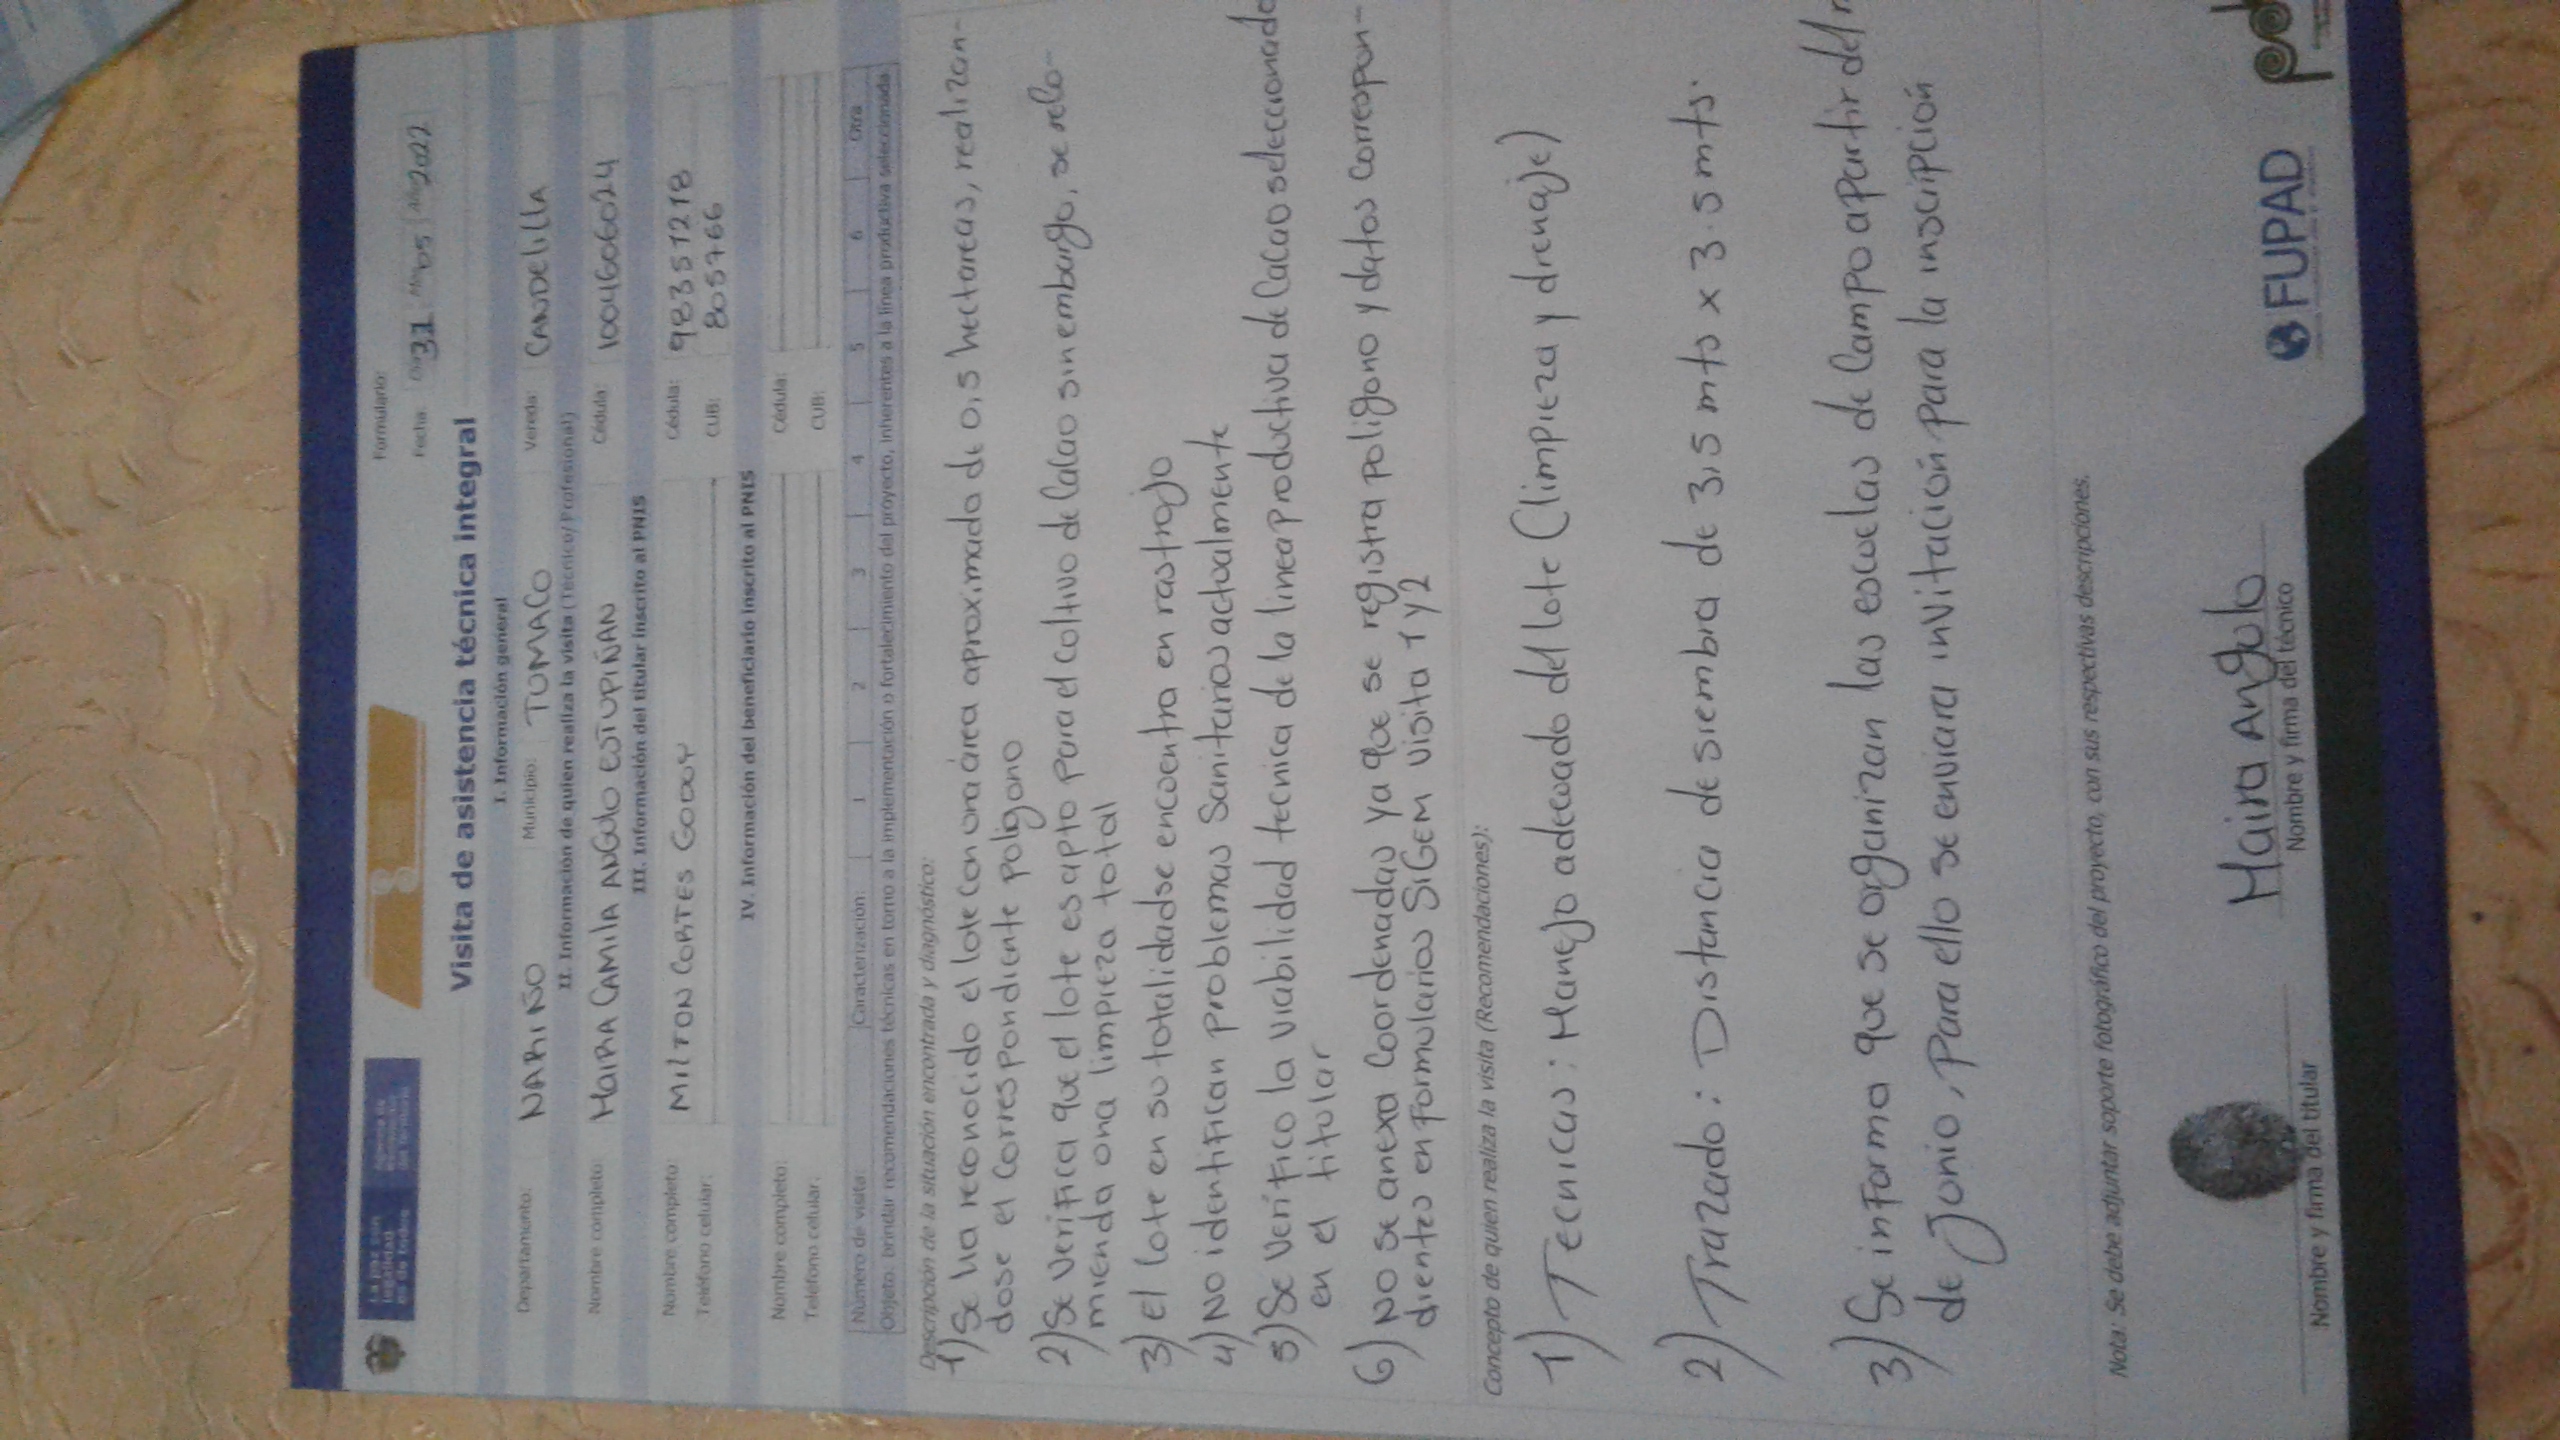 La paz con
legalidad
es de todos
Agencia de
Renovación
del Territorio
Formulario:
Fecha: Día 31 Mes 05 Año 2022
Visita de asistencia técnica integral
I. Información general
Departamento: NARIÑO Municipio: TUMACO Vereda: CANDELILLA
II. Información de quien realiza la visita (Técnico/Profesional)
Nombre completo: MAIRA CAMILA ANGULO ESTUPIÑAN Cédula: 1004606024
III. Información del titular inscrito al PNIS
Nombre completo: MILTON CORTES GODOY Cédula: 983351218
Teléfono celular: CUB: 8057766
IV. Información del beneficiario inscrito al PNIS
Nombre completo: Cédula:
Teléfono celular: CUB:
Número de visita: Caracterización: 1 2 3 4 5 6 Otra
Objeto: brindar recomendaciones técnicas en torno a la implementación o fortalecimiento del proyecto, inherentes a la línea productiva seleccionada
Descripción de la situación encontrada y diagnóstico:
1) Se ha reconocido el lote con una área aproximada de 0,5 hectareas, realizan-
dose el correspondiente poligono
2) Se verifica que el lote es apto para el cultivo de Cacao sin embargo, se reco-
mienda una limpieza total
3) El lote en su totalidadse encuentra en rastrojo
4) No identifican problemas Sanitarios actualmente
5) Se verifico la viabilidad tecnica de la linea productiva de Cacao seleccionada
en el titular
6) No se anexa Coordenadas ya que se registra poligono y datos correspon-
dientes en formularios SIGEM visita 1 y 2
Concepto de quien realiza la visita (Recomendaciones):
1) Tecnicas: Manejo adecuado del lote (limpieza y drenaje)
2) Trazado: Distancia de siembra de 3,5 mts x 3.5 mts.
3) Se informa que se organizan las escuelas de Campo apartir del
de Junio, Para ello se enviara invitación para la inscripción
Nota: Se debe adjuntar soporte fotográfico del proyecto, con sus respectivas descripciones.
Maira Angulo
Nombre y firma del titular Nombre y firma del técnico
FUPAD